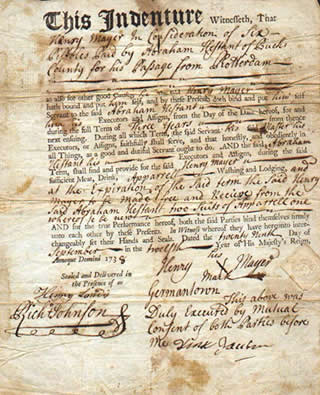 This Indenture Witnesseth, That
Henry Mayer in Consideration of Six
Pistoles Paid by Abraham Hestant of Bucks
County for his Passage from Rotterdam
as also for other good Causes he the said Henry Mayer
hath bound and put him self, and by these Presents doth bind and put him self
Servant to the said Abraham Hestant
his Executors and Assigns, from the Day of the Date hereof, for and
during the full Term of Three Years from thence
next ensuing. During all which Term, the said Servant his said Master his
Executors, or Assigns, faithfully shall serve, and that honestly and obediently in
all Things, as a good and dutiful Servant ought to do. AND the said Abraham
Hestant his Executors and Assigns, during the said
Term, shall find and provide for the said Henry Mayer
sufficient Meat, Drink, Apparel, Washing and Lodging, and
at the Expiration of the said term the said Henry
Mayer to be made free and Receive from the
Said Abraham Hestant two Suits of Apparrell one
whereof to be new
AND for the true Performance hereof, both the said Parties bind themselves firmly
unto each other by these Presents. In Witness whereof they have hereunto inter-
changeably set their Hands and Seals. Dated the Day of
September in the twelfth Year of His Majesty's Reign,
Annoque Domini 1738
his
Henry Mayer
Mark
Sealed and Delivered in
the Presence of us
Henry
Rich Johnson
Germantown
This above was
Duly Executed by Mutual
Consent of both the Parties before
Me